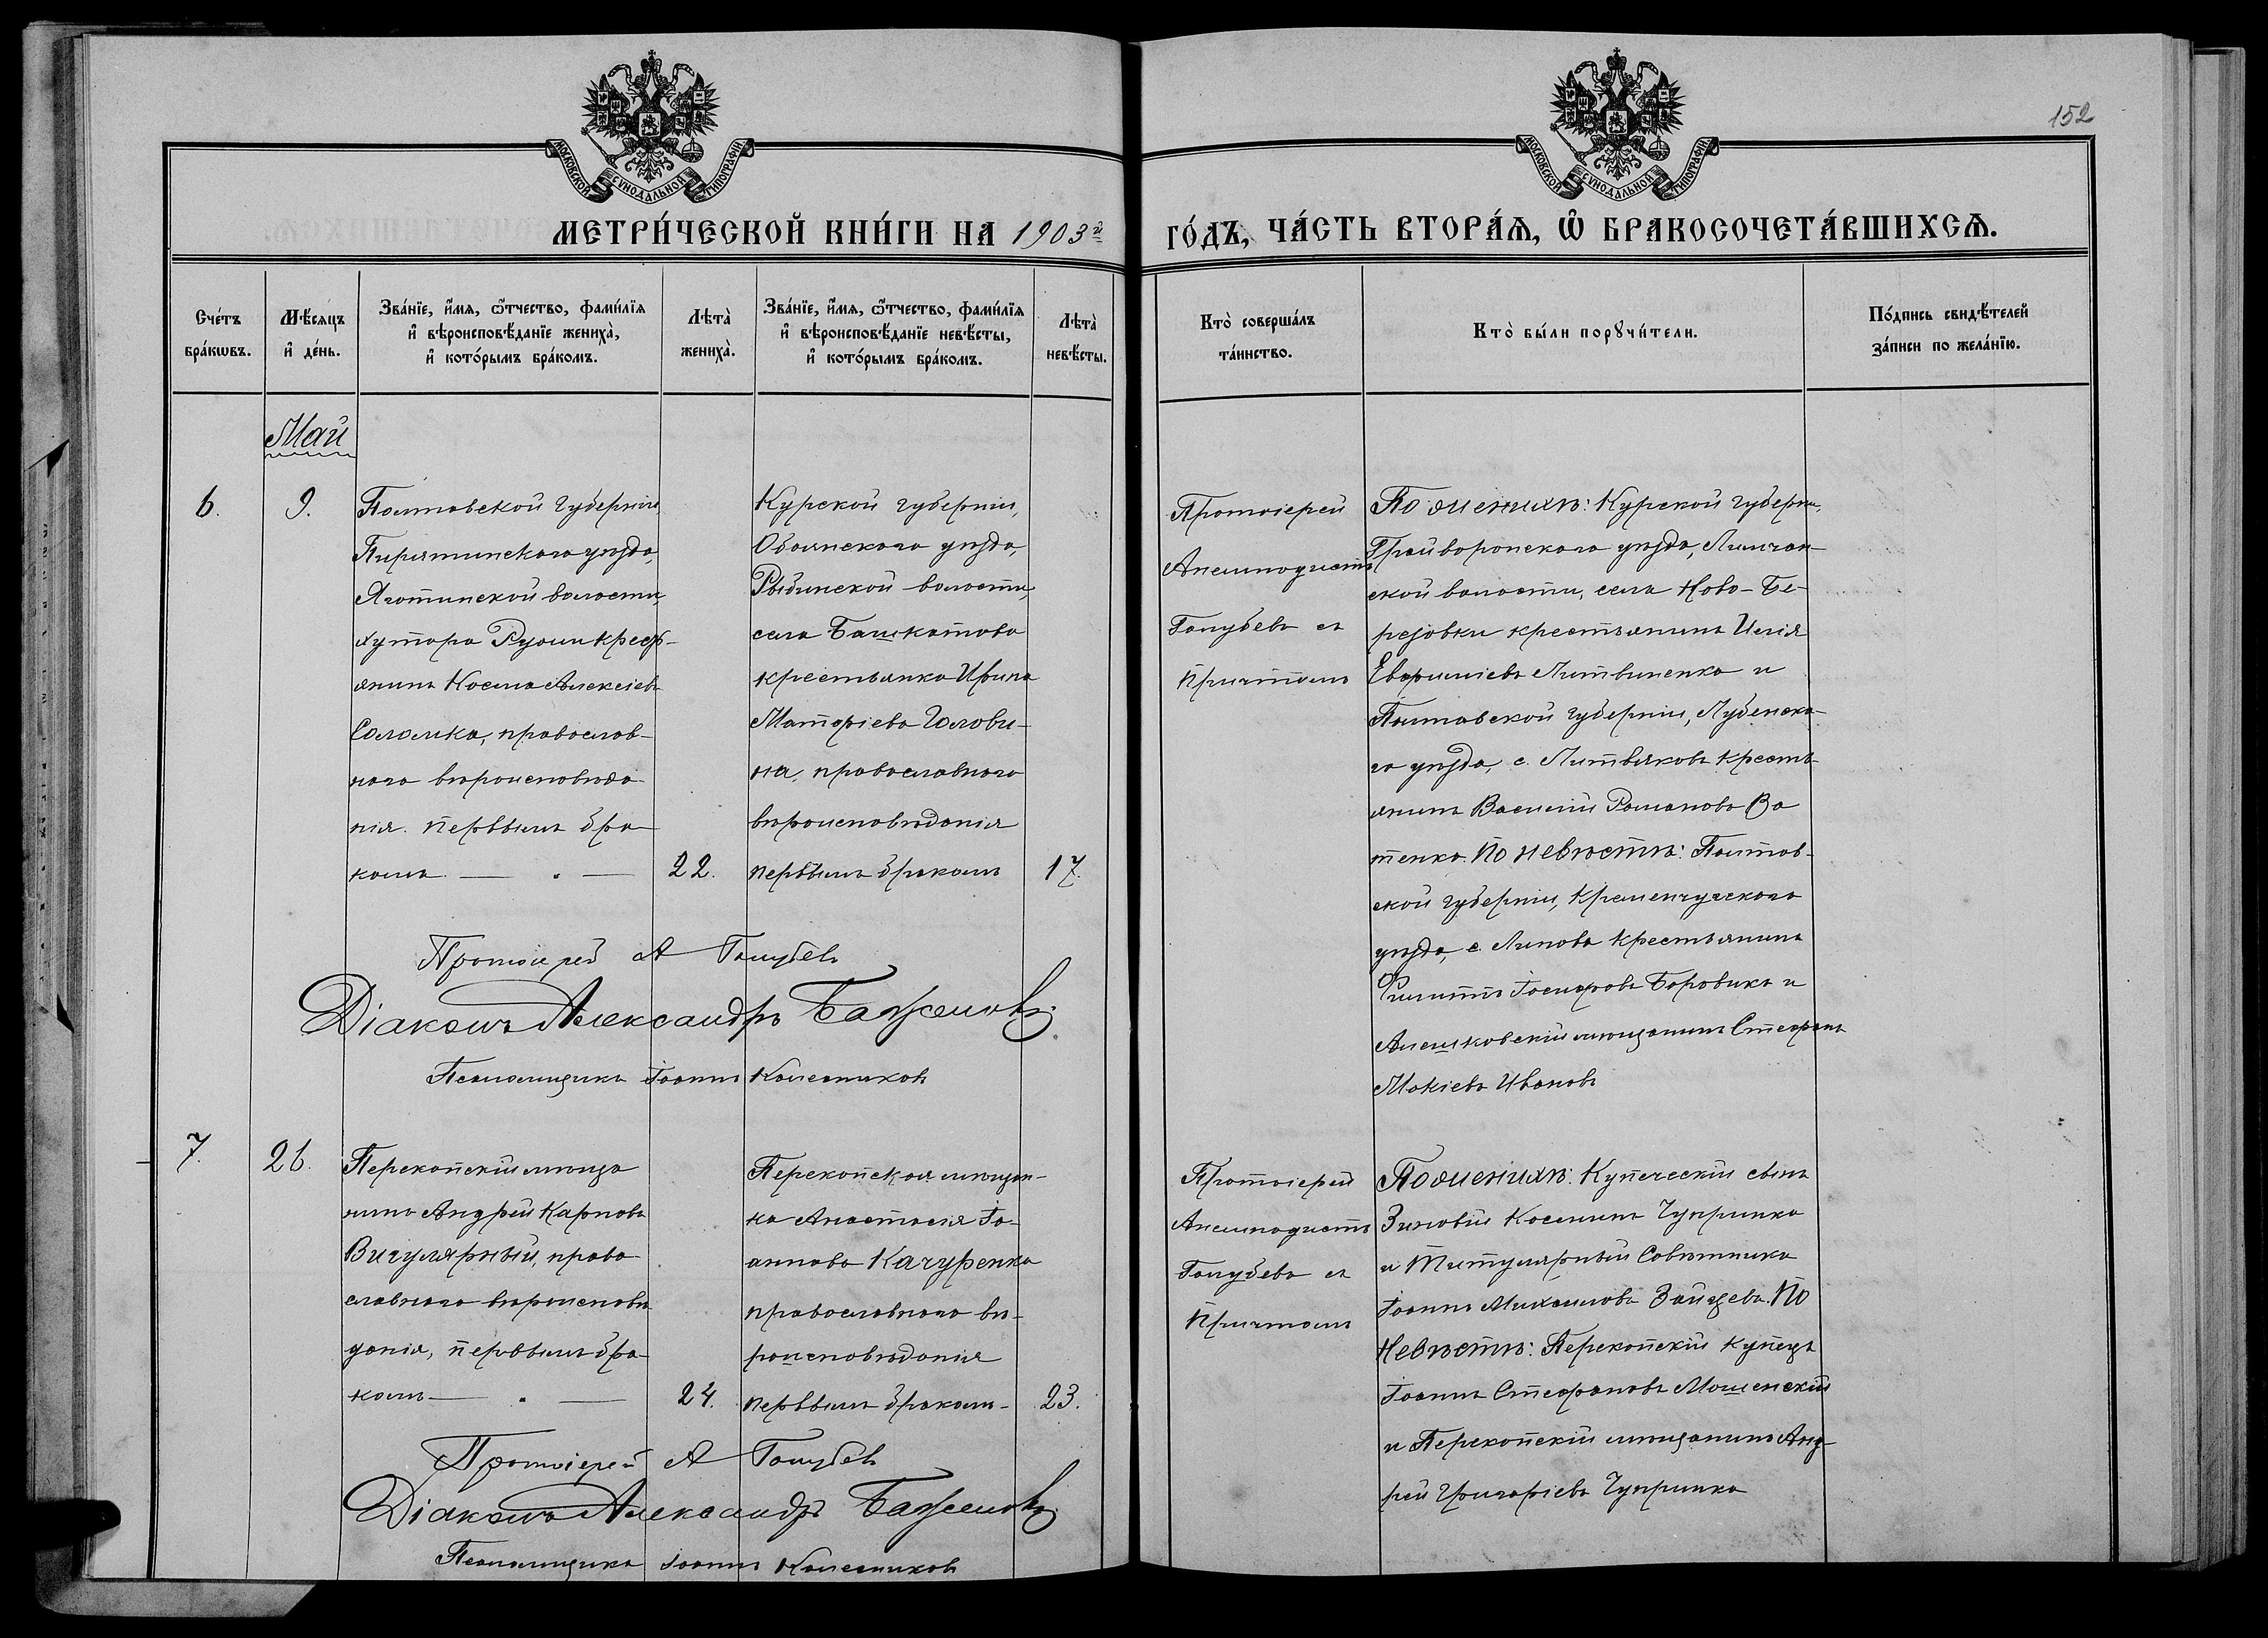 152
МОСКОВСКОЙ СѴНОДАЛЬНОЙ ТИПОГРАФІИ
МОСКОВСКОЙ СѴНОДАЛЬНОЙ ТИПОГРАФІИ
МЕТРИ́ЧЕСКОЙ КНИ́ГИ НА 1903й
ГО́ДЪ, ЧА́СТЬ ВТОРА́Ѧ, Ѡ҆ БРАКОСОЧЕТА́ВШИХСѦ.
Сче́тъ
бра́кѡвъ.
Мѣ́сяцъ
и҆ де́нь.
Зва́нїе, и҆́мя, ѻ҆́тчество, фами́лїя
и҆ вѣроисповѣ́данїе жениха̀,
и҆ кото́рымъ бра́комъ.
Лѣта̀
жениха̀.
Зва́нїе, и҆́мя, ѻ҆́тчество, фами́лїя
и҆ вѣроисповѣ́данїе невѣ́сты,
и҆ кото́рымъ бра́комъ.
Лѣта̀
невѣ́сты.
Кто̀ соверша́лъ
та́инство.
Кто̀ бы́ли порꙋчи́тели.
По́дпись свидѣ́телей
за́писи по жела́нїю.
Май
6.
9.
Полтавской губерніи,
Пирятинскаго уѣзда,
Яготинской волости,
хутора Рудни крестъ-
янинъ Косма Алексіевъ
Соломка, православ-
наго вѣроисповѣда-
нія. первымъ бра-
комъ. — " —
22.
Курской губерніи,
Обоянскаго уѣзда,
Рыбинской волости,
села Башкатова
крестьянка Ирина
Матѳіева Голови-
на, православнаго
вѣроисповѣданія
первымъ бракомъ
17.
Протоіерей
Анемподистъ
Голубевъ съ
причтомъ
По женихѣ: Курской губерн.,
Грайворонскаго уѣзда,
ской волости, села Ново-Бе-
резовки крестьянинъ Илія
Литвиненко и
Полтавской губерніи, Лубенска-
го уѣзда, с. Литвяковъ кресть-
янинъ Василій Романовъ Ва
тенко. По невѣстѣ: Полтав-
ской губерніи, Кременчугскаго
уѣзда, с. Липова крестьянинъ
Филиппъ Іосифовъ Боровикъ и
Алешковскій мѣщанинъ Стефанъ
Мокіевъ Ивановъ
Протоіерей А Голубевъ
Діаконъ Александръ Баженовъ.
Псаломщикъ Іоаннъ Колесниковъ
7.
26.
Перекопскій мѣща
нинъ Андрей Карповъ
Вигулярный, право-
славнаго вѣроисповѣ
данія, первымъ бра-
комъ — " —
24.
Перекопская мѣщан-
ка Анастасія Іо-
аннова Качуренко
православнаго вѣ-
роисповѣданія
первымъ бракомъ-
23.
Протоіерей
Анемподистъ
Голубевъ съ
причтомъ
По женихѣ: Купеческій сынъ
Зиновій Косминъ Чупринка
и Титулярный Совѣтникъ
Іоаннъ Михаиловъ Зайцевъ. По
невѣстѣ: Перекопскій купецъ
Іоаннъ Стефановъ Мошенскій
и Перекопскій мѣщанинъ Анд-
рей Григоріевъ Чупринка
Протоіерей А Голубевъ
Діаконъ Александръ Баженовъ.
Псаломщикъ Іоаннъ Колесниковъ